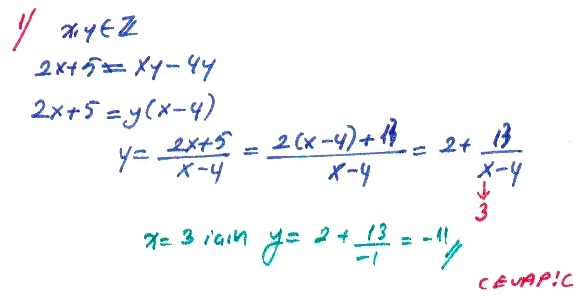 1/ x,y ∈ ℤ
2x+5 = xy-4y
2x+5 = y(x-4)
y = (2x+5)/(x-4) = (2(x-4)+13)/(x-4) = 2 + 13/(x-4)
↓
3
x = 3 için y = 2 + 13/-1 = -11//
CEVAP: C